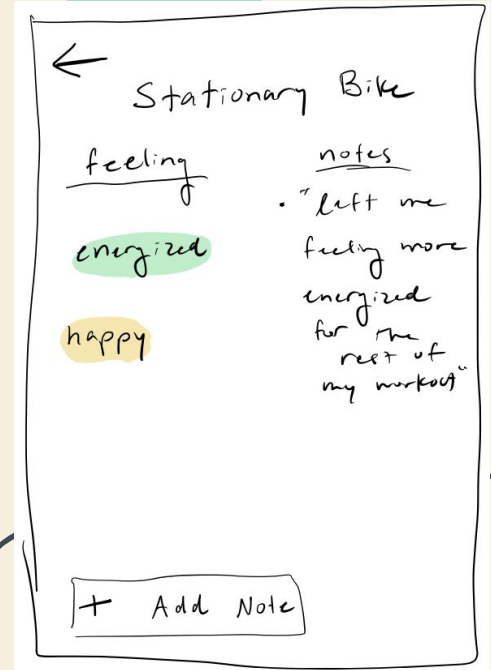 Stationary Bike
feeling
energized
happy
notes
• "left me
feeling more
energized
for the
rest of
my workout"
+ Add Note